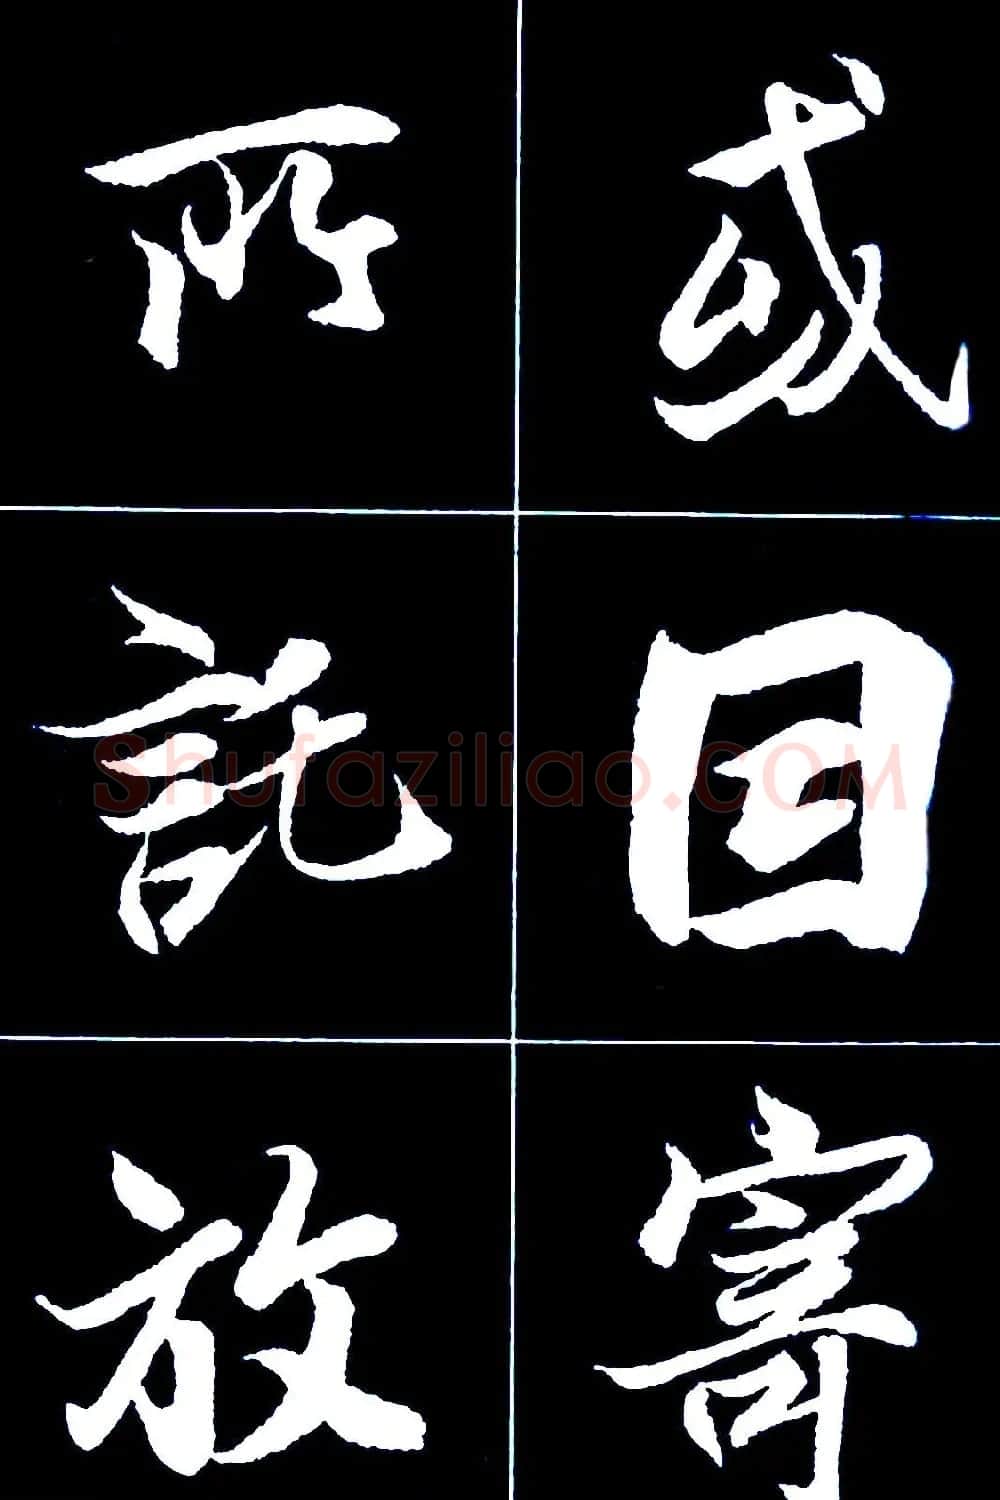 或因寄
所託放
Shufaziliao.COM